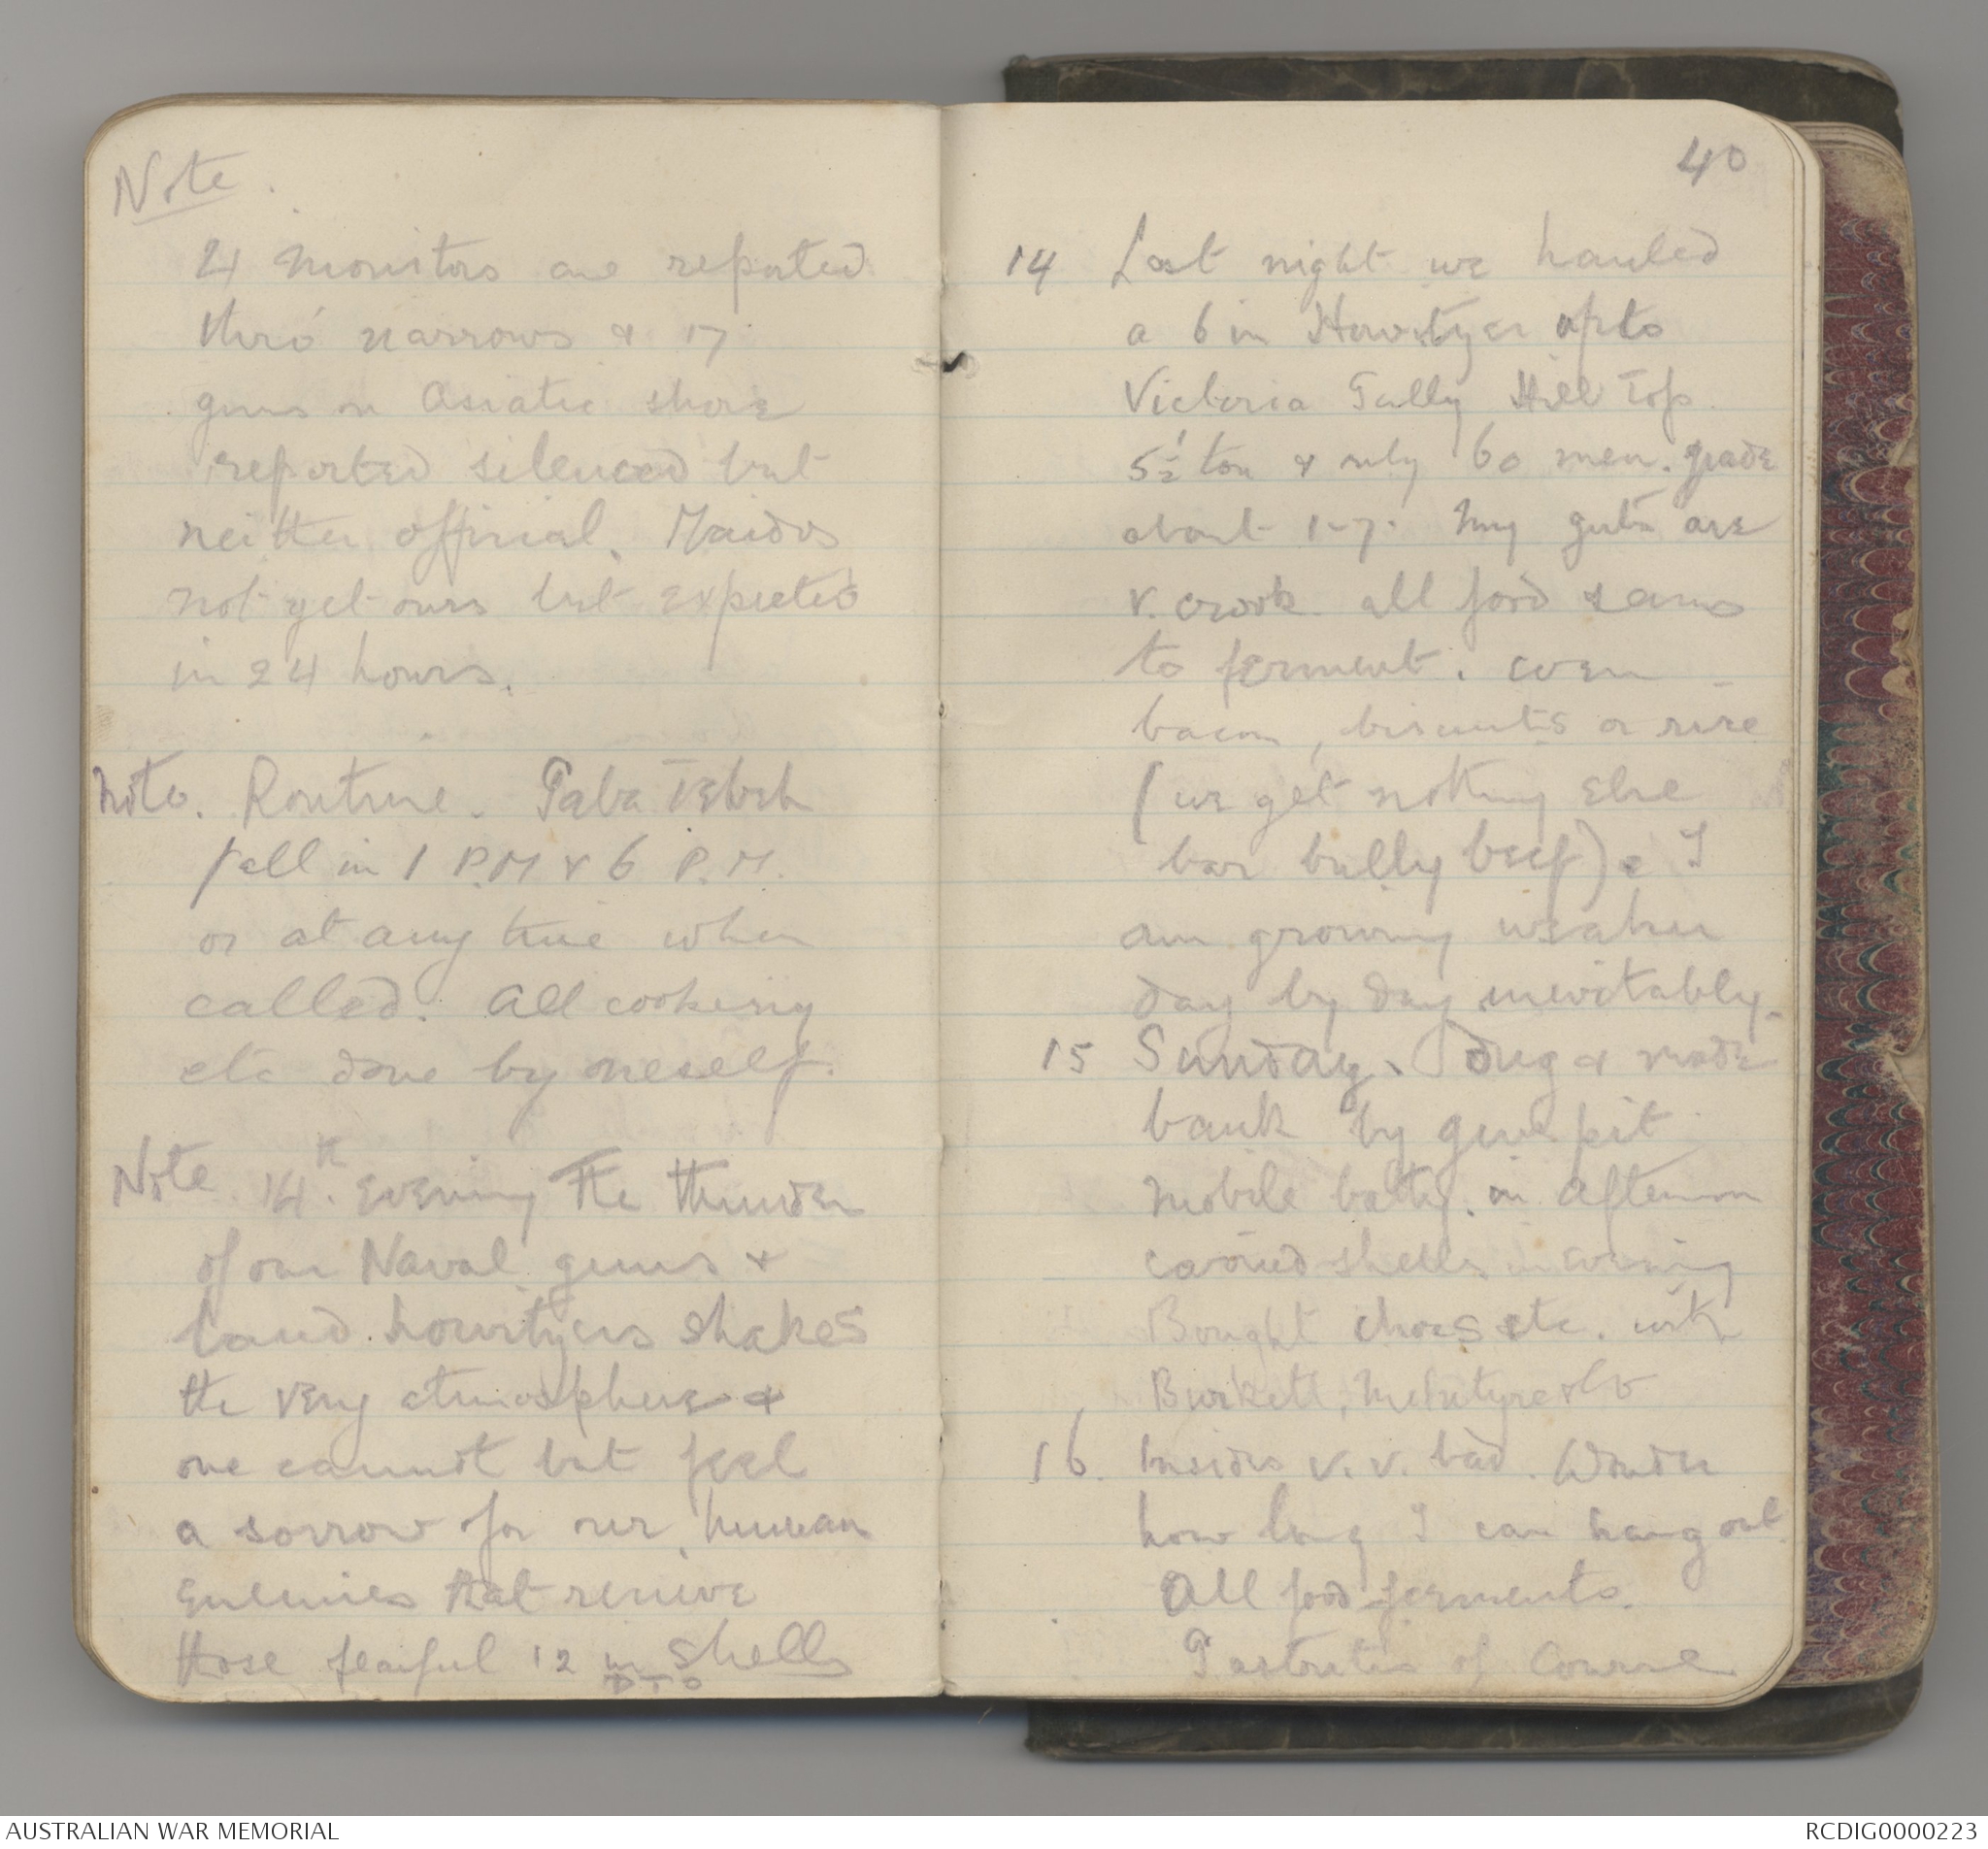 Note.
4 monitors are reported
thro' narrows & 17
guns on Asiatic shore
reported silenced but
neither official. Maidos
not yet ours but expected
in 24 hours.
Note. Routine. Gaba Tebeh
fall in 1 P.M & 6 P.M.
or at any time when
called. All cooking
etc done by oneself.
Note 14th. Evening The thunder
of our Naval guns &
land howityers shakes
the very atmosphere &
one cannot but feel
a sorrow for our human
enemies that recieve
those fearful 12 in shells
P.T.O
40
14 Last night we hauled
a 6 in Howityer up to
Victoria Gully Hill Top
5½ ton & only 60 men. grade
about 1-7. My guts are
v. crook. all food seems
to ferment. even
bacon, biscuits or rice
(we get nothing else
bar bully beef). I
am growing weaker
day by day inevitably.
15 Sunday. Dug & made
bank by gun pit
mobile batty. in afternoon
carried shells in evening
Bought choc etc. with
Burkett, McIntyre & Co
16. Insides v. v. bad. Wonder
how long I can hang out
All food ferments.
Gastritis of course
AUSTRALIAN WAR MEMORIAL
RCDIG0000223